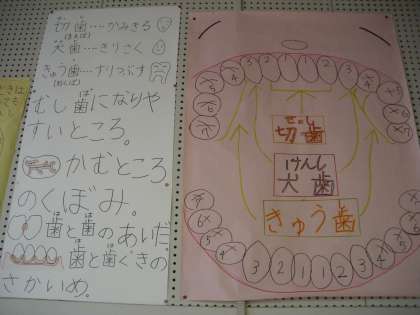 切歯…かみきる
(まえば)
犬歯…きりさく
きゅう歯…すりつぶす
(おくば)
むし歯になりや
ば
すいところ。
かむところ
のくぼみ。
は は
歯と歯のあいだ
は は
歯と歯ぐきの
さかいめ。
4 3 2 1 1 2 3 4
せっし
切歯
けんし
犬歯
きゅう歯
3 2 1 1 2 3